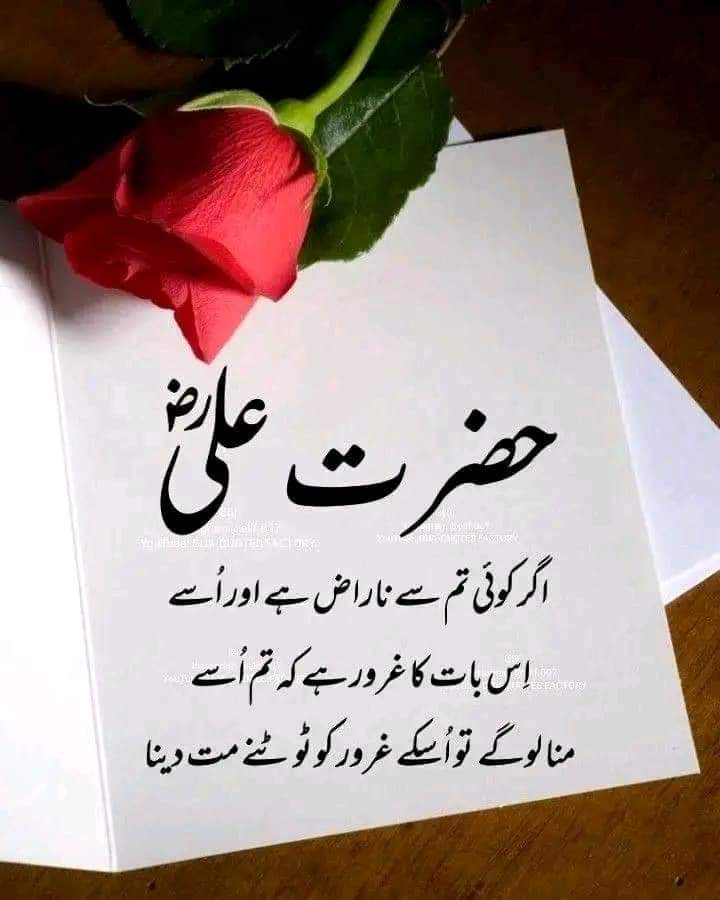 حضرت علی رض
اگر کوئی تم سے ناراض ہے اور اُسے
اِس بات کا غرور ہے کہ تم اُسے
منا لو گے تو اُسکے غرور کو ٹوٹنے مت دینا